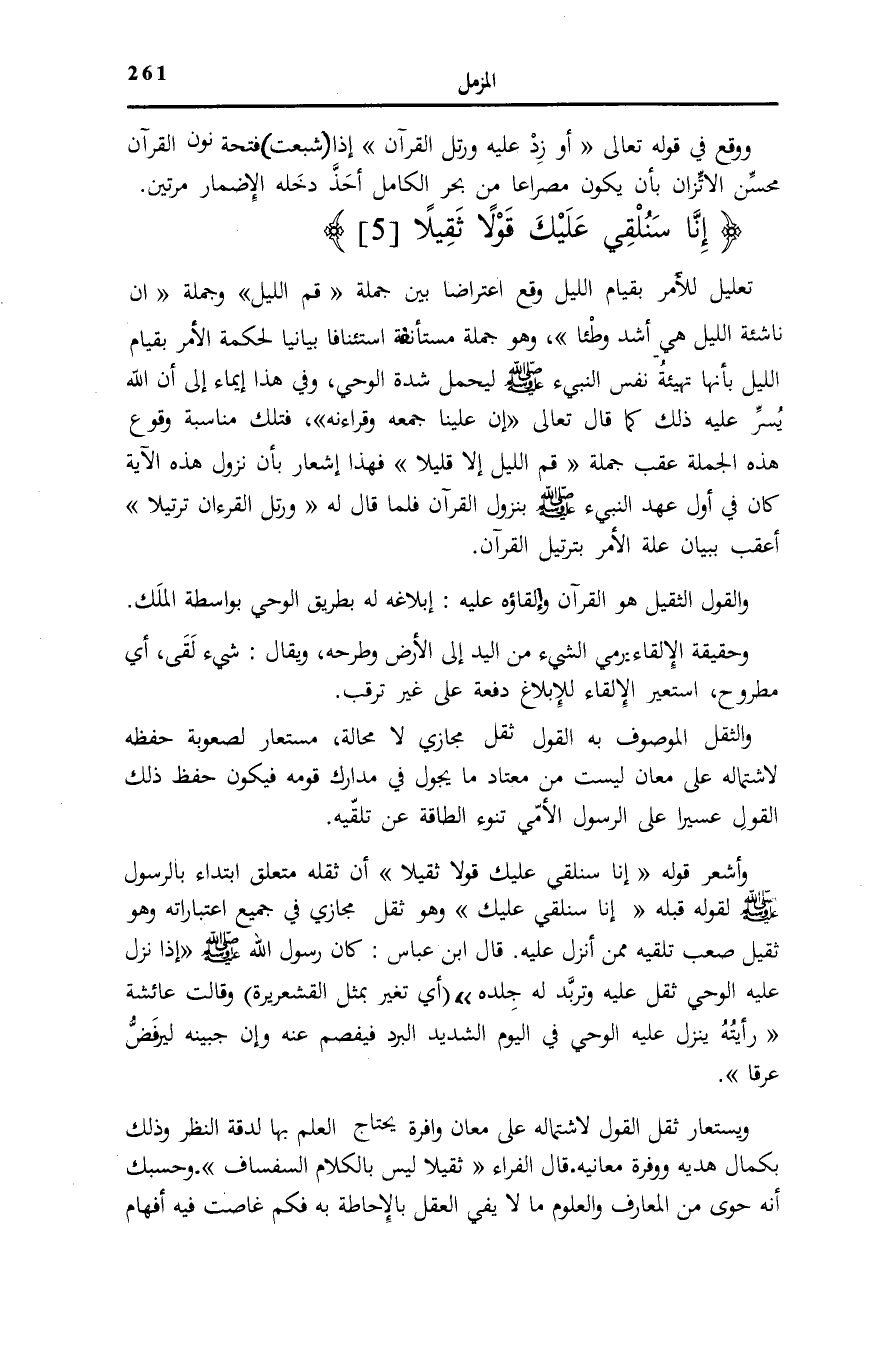 261
المزمل
ووقع في قوله تعالى « أو زِدْ عليه ورتل القرآن » إذا(شبعت)فتحة نون القرآن
محسِّن الاتِّزان بأن يكون مصراعا من بحر الكامل أحَذَّ دخَله الإضمار مرتين.
﴿ إِنَّا سَنُلْقِي عَلَيْكَ قَوْلًا ثَقِيلًا [5] ﴾
تعليل للأمر بقيام الليل وقع اعتراضا بين جملة « قم الليل» وجملة « ان
ناشئة الليل هي أشد وطْئا »، وهو جملة مستأنفة استئنافا بيانيا لحكمة الأمر بقيام
الليل بأنها تهيئةُ نفس النبيء ﷺ ليحمل شدة الوحي، وفي هذا إيماء إلى أن الله
يُسرِّ عليه ذلك كما قال تعالى «إن علينا جمعه وقراءنه»، فتلك مناسبة وقوع
هذه الجملة عقب جملة « قم الليل إلا قليلا » فهذا إشعار بأن نزول هذه الآية
كان في أول عهد النبيء ﷺ بنزول القرآن فلما قال له « ورتل القرءان ترتيلا »
أعقب ببيان علة الأمر بترتيل القرآن.
والقول الثقيل هو القرآن وإلقاؤه عليه : إبلاغه له بطريق الوحي بواسطة الملَك.
وحقيقة الإلقاء:رمي الشيء من اليد إلى الأرض وطرحه، ويقال : شيء لَقَى، أي
مطروح، استعير الإلقاء للإبلاغ دفعة على غير ترقب.
والثقل الموصوف به القول ثقل مجازي لا محالة، مستعار لصعوبة حفظه
لاشتماله على معان ليست من معتاد ما يجول في مدارك قومه فيكون حفظ ذلك
القولِ عسيرا على الرسول الأمّي تنوء الطاقة عن تلقّيه.
وأشعر قوله « إنا سنلقي عليك قولا ثقيلا » أن ثقله متعلق ابتداء بالرسول
ﷺ لقوله قبله « إنا سنلقي عليك » وهو ثقل مجازي في جميع اعتباراته وهو
ثقيل صعب تلقيه ممن أنزل عليه. قال ابن عباس : كان رسول الله ﷺ «إذا نزل
عليه الوحي ثقل عليه وتربَّد له جِلده » (أي تغير بمثل القشعريرة) وقالت عائشة
« رأيتُهُ ينزل عليه الوحي في اليوم الشديد البرد فيفصم عنه وإن جبينه ليرفَضُّ
عرقا ».
ويستعار ثقل القول لاشتماله على معان وافرة يحتاج العلم بها لدقة النظر وذلك
بكمال هديه ووفرة معانيه.قال الفراء « ثقيلا ليس بالكلام السفساف ».وحسبك
أنه حوى من المعارف والعلوم ما لا يفي العقل بالإحاطة به فكم غاصت فيه أفهام